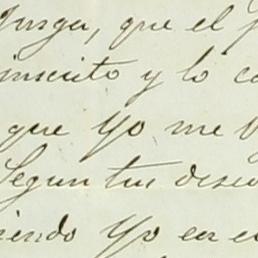 que el
inscrito y lo
que Yo me
Segun tus dese
iendo Yo en e